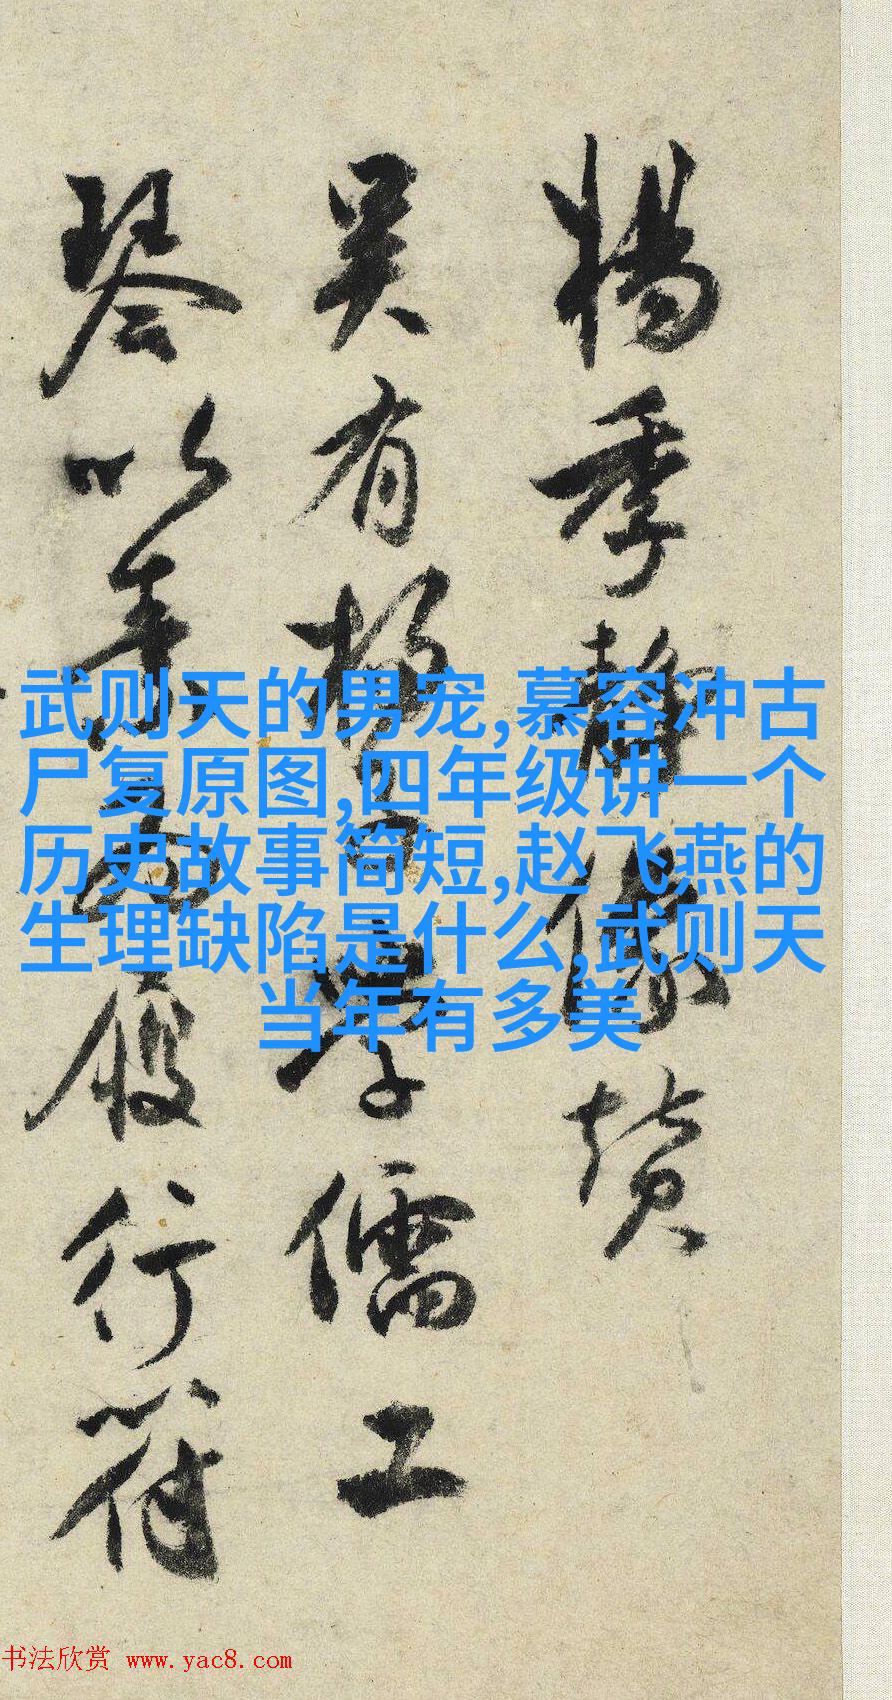 楊季靜像贊
吴有楊學儒工
琴以履行符
武则天的男宠,慕容冲古
尸复原图,四年级讲一个
历史故事简短,赵飞燕的
生理缺陷是什么,武则天
当年有多美
书法欣赏 www.yac8.com